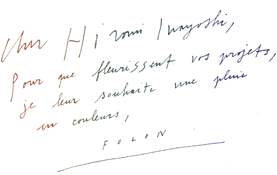 Cher Hiromi Inayoshi,
Pour que fleurissent vos projets,
je leur souhaite une pluie
en couleurs,
FOLON